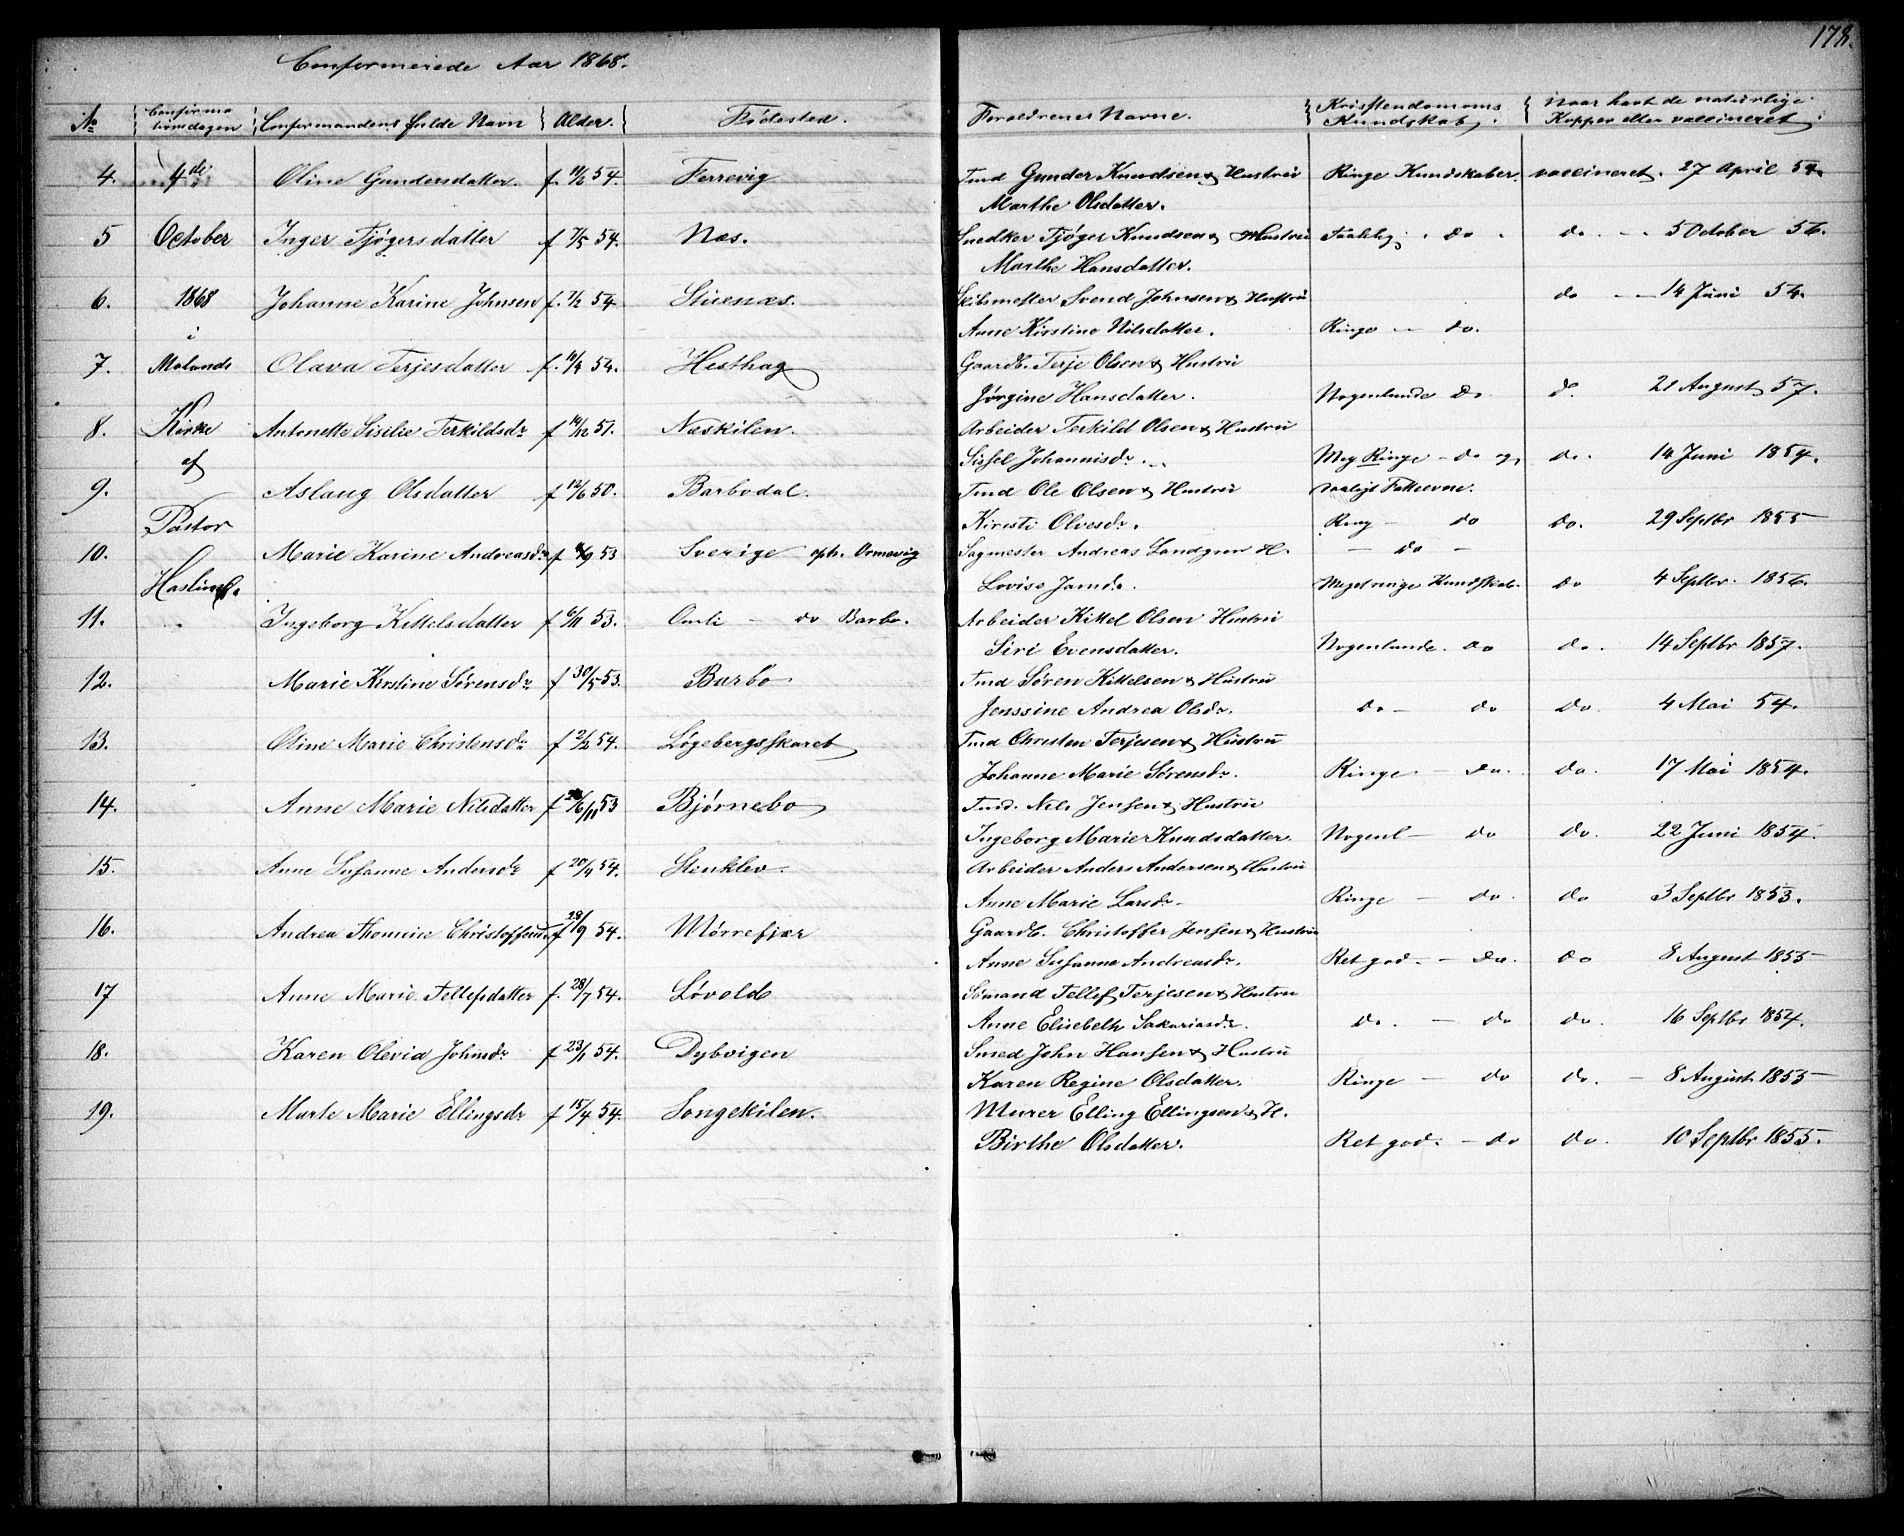 178.
Confirmerede Aar 1868.
No Confirmationsdagen Confirmandens fulde Navn Alder. Fødested. Forældrenes Navne. Kristendomens Kundskab. Naar havt de naturlige Kopper eller vaccineret.
4. 4de Oline Gundersdatter. f. 11/2 54. Ferrevig Tmd Gunder Knudsen & Hustru Ringe Kundskaber. vaccineret. 27 April 54.
Marthe Olsdatter.
5 October Inger Tjøgersdatter f 7/5 54. Næs. Snedker Tjøger Knudsen & Hustru Taalelig. do. do. 5 October 56.
Marthe Hansdatter.
6. 1868 Johanne Karine Johnsen f. 7/2 54 Stuenæs. Skibmester Svend Johnsen & Hustru do 14 Juni 54.
i Anne Kirstine Nilsdatter. Ringe do.
7. Molands Olava Terjesdatter f. 11/4 54. Hesthag Gaardb. Terje Olsen & Hustru
Jørgine Hansdatter. Nogenlunde Do d. 21 August 57.
8. Kirke Antonette Sisilie Terkildsdr f 14/12 51. Næskilen. Arbeider Terkild Olsen & Hustru
af Sissel Johannisdr. Meg Ringe - do og do. 14 Juni 1854.
9. Aslaug Olsdatter f 12/6 50. Barbodal. Tmd Ole Olsen & Hustru Fatteevne.
Pastor Kirsti Olvesdr. Ring - do do. 29 Septbr 1855
10. Marie Karine Andreasdr f 9 53 Sverige oph. Ormevig Sagmester Andreas Landgren H. - do -
Lovise Jansdr. Meget ringe Kundskab. do 4 Septbr. 1856.
11. Ingeborg Kittelsdatter f 6/11 53. Omli - do Barbo. Arbeider Kittel Olsen Hustru
Siri Evensdatter. Nogenlunde. do do. 14 Septbr 1857.
12. Marie Kirstine Sørensdr f 30/5 53. Barbo Tmd Søren Kittelsen & Hustru
Jenssine Andrea Olsdr. do - do do. 4 Mai 54.
13. Oline Marie Christensdr f 2/2 54. Løgebergsskaret Tmd Christen Terjesen & Hustru
Johanne Marie Sørensdr. Ringe - do. do. 17 Mai 1854.
14. Anne Marie Nilsdatter f 11 53 Bjørnebo Tmd. Nils Jensen & Hustru
Ingeborg Marie Knudsdatter. Nogenl - do do. 22 Juni 1854.
15. Anne Susanne Andersdr f 20/4 54. Stenklev Arbeider Anders Andersen & Hustru
Anne Marie Larsdr. Ringe - do. do 3 Septbr 1853.
16. Andrea Thomine Christoffersdr f 29/9 54. Mørrefjær Gaardb. Christoffer Jensen & Hustru
Anne Susanne Andreasdr. Ret god. - do. do 8 August 1855
17 Anne Marie Tellefsdatter f. 28/7 54. Løvold Sømand Tellef Terjesen & Hustru
Anne Elisebeth Sakariasdr. do. - do do. 16 Septbr 1854.
18. Karen Olevia Johnsdr f 23/1 54. Dybvigen Smed John Hansen & Hustru
Karen Regine Olsdatter. Ringe - do do. - 8 August. 1855
19. Marte Marie Ellingsdr f 15/4 54. Songekilen. Murer Elling Ellingsen & H.
Birthe Olsdatter. Ret god. - do do. 10 Septbr 1855.